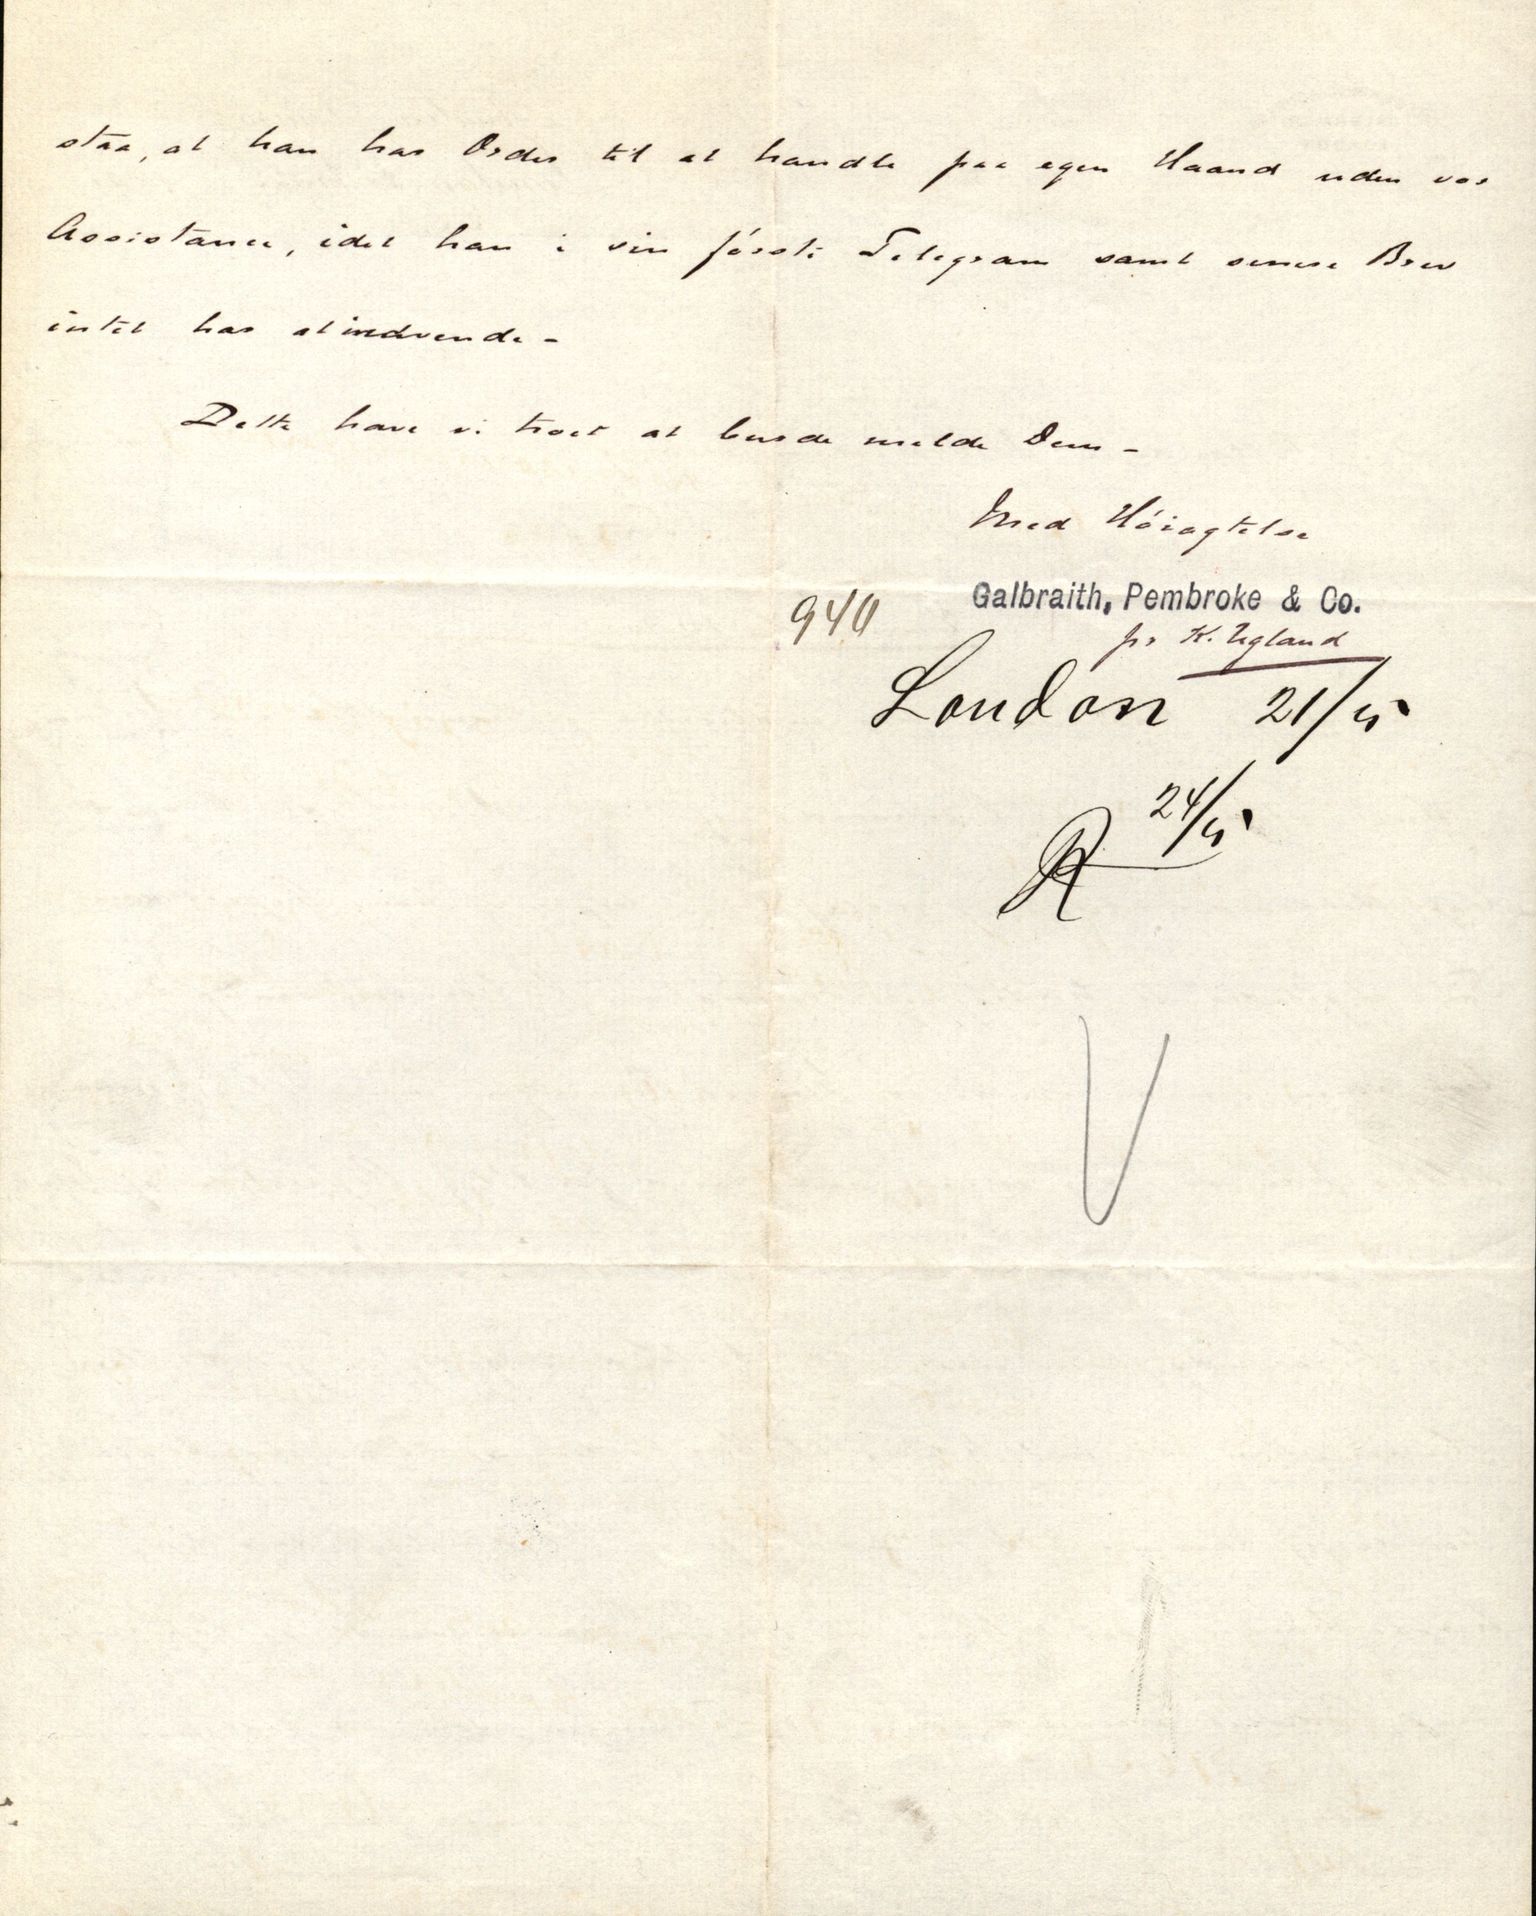 staa, at han har Order til at handle paa egen Haand uden vor
Assistance, idet han i sin förste Telegram samt senere Brev
intet har at indvende -
Dette have vi troet at burde melde Dem -
Med Höiagtelse
Galbraith, Pembroke & Co.
pr K. Ugland
940
London 21/5
R 24/5